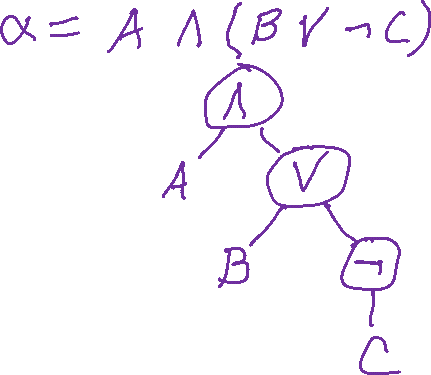 α = A ∧ (B ∨ ¬ C)
∧
A
∨
B
¬
C